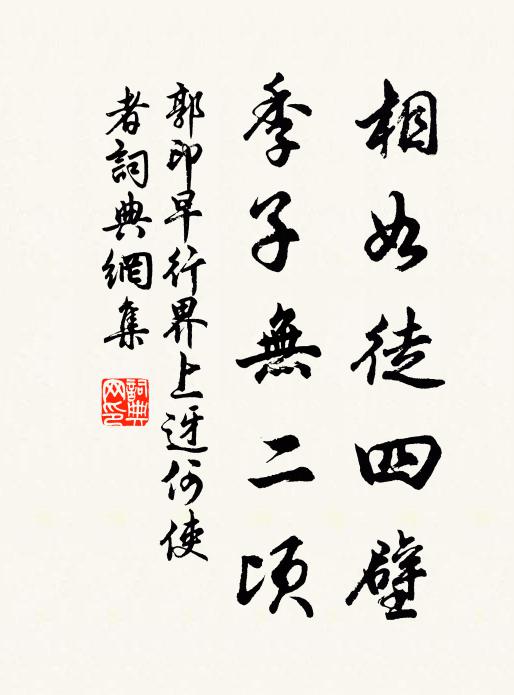 相如徒四壁
季子無二頃
郭印早行界上迓何使
者詞典網集
詞典
网印